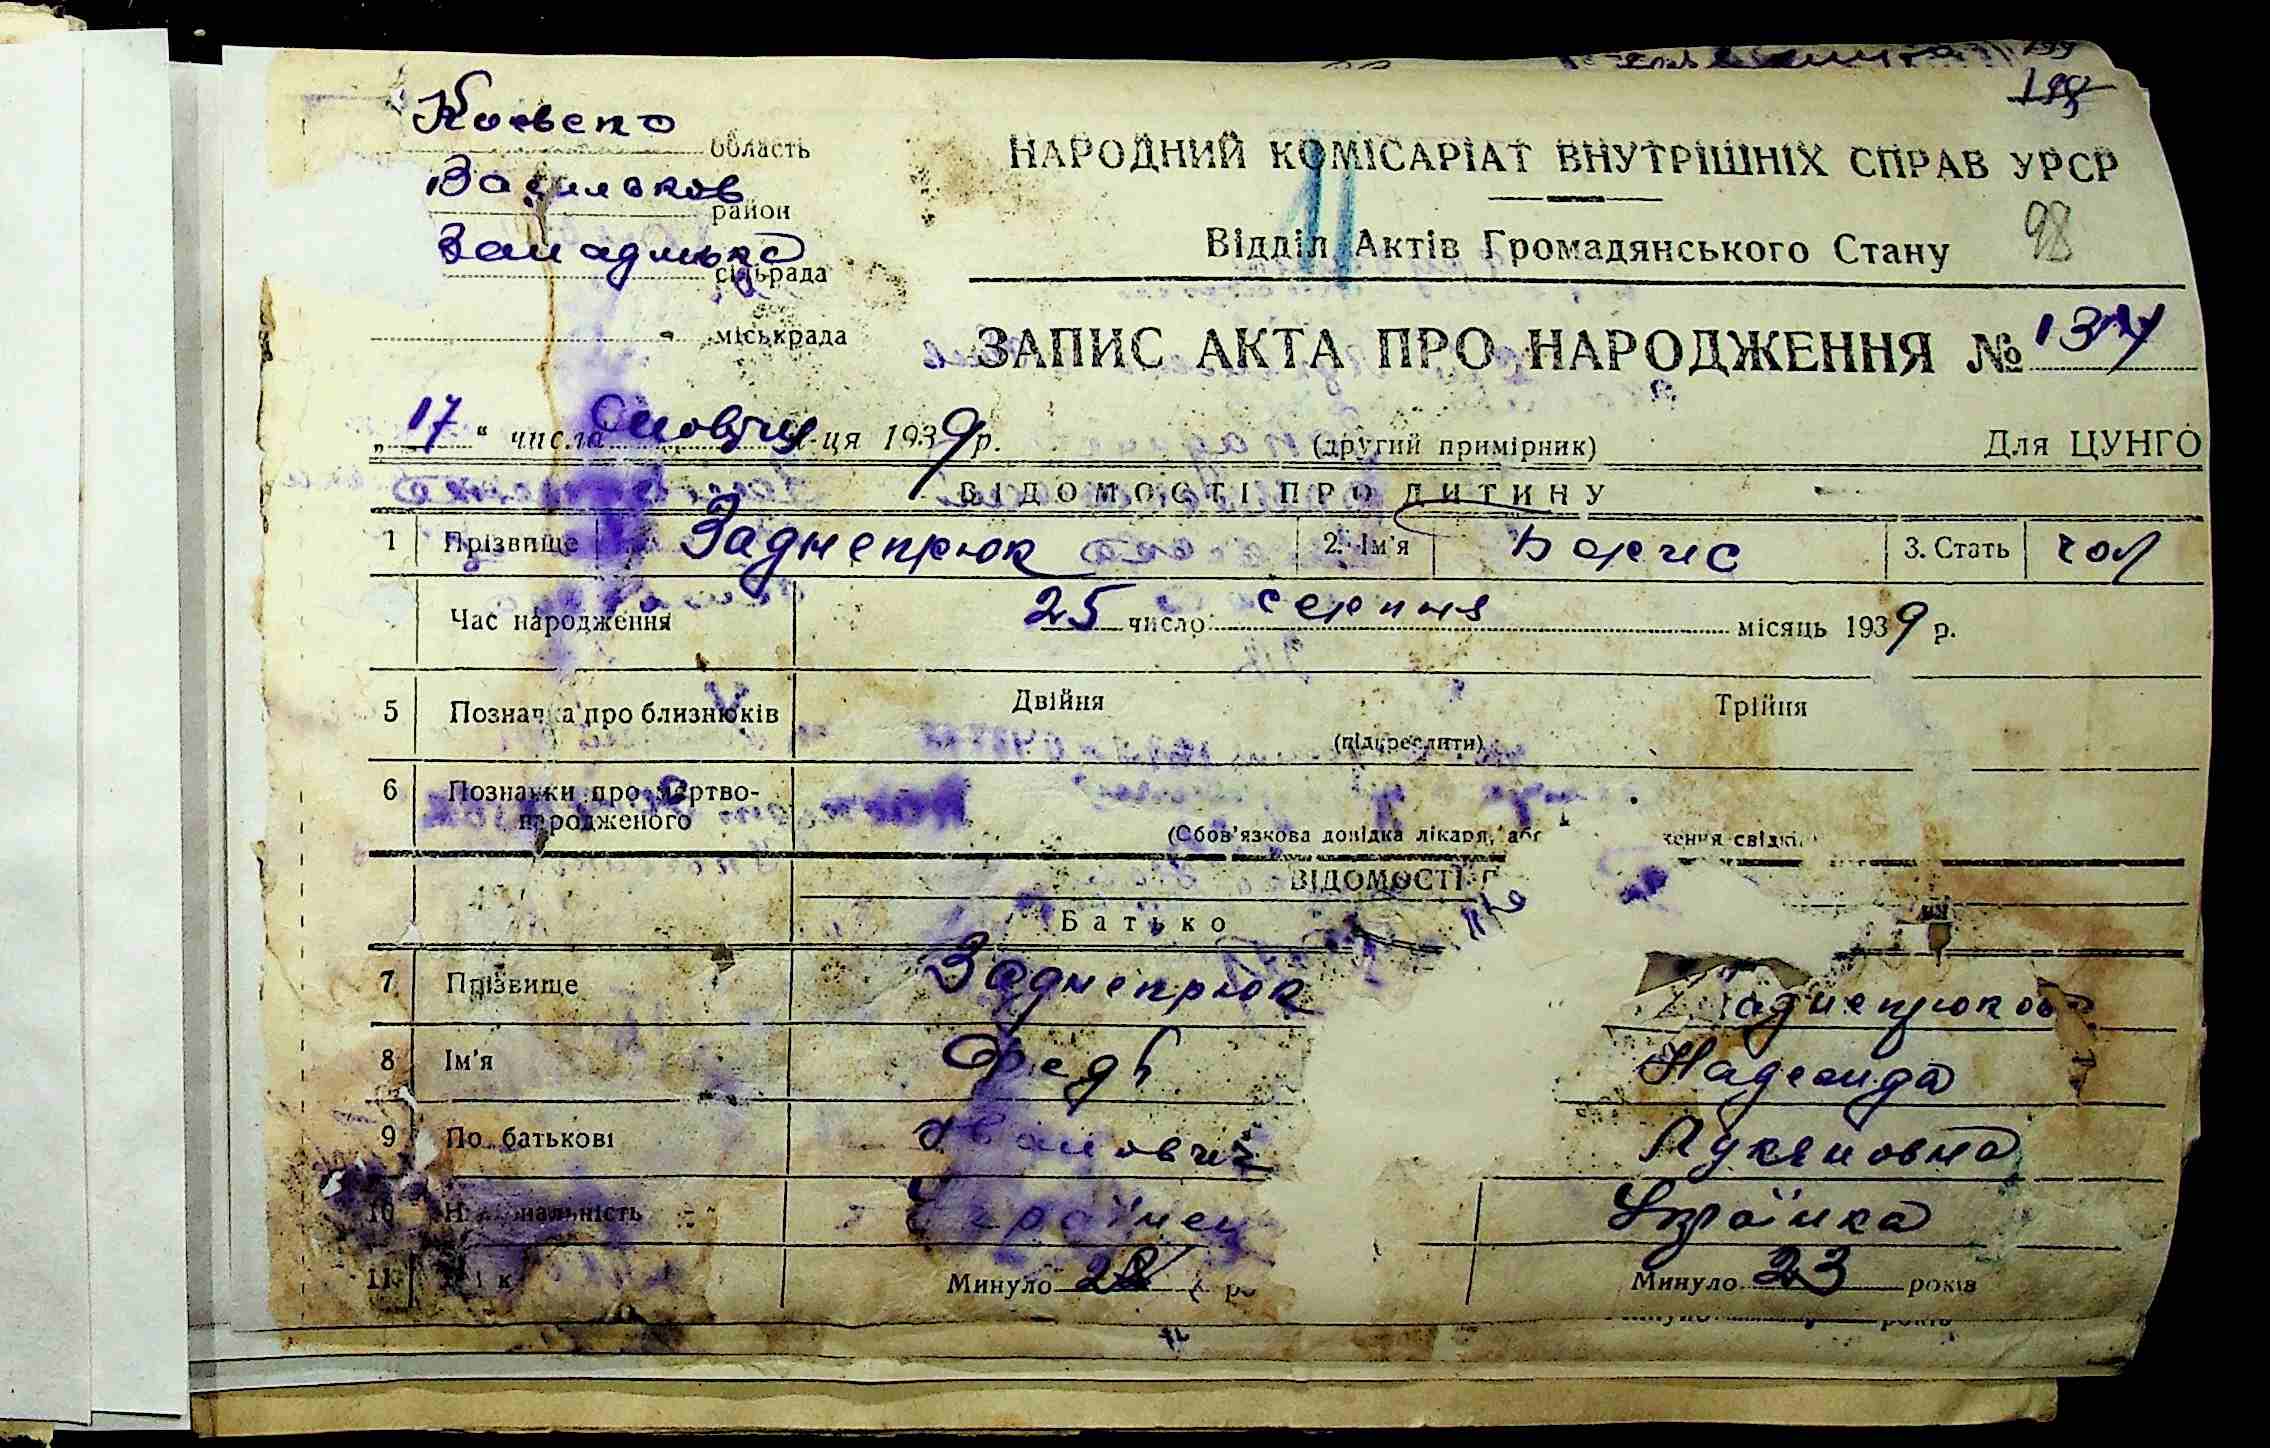 199
Киевско область
Васильков район
Западинско сільрада
міськрада
НАРОДНИЙ КОМІСАРІАТ ВНУТРІШНІХ СПРАВ УРСР
11
Відділ Актів Громадянського Стану
98
ЗАПИС АКТА ПРО НАРОДЖЕННЯ №
„17“ числа м-ця 1939 р.
(другий примірник)
Для ЦУНГО
ВІДОМОСТІ ПРО ДИТИНУ
1 Прізвище Заднепрюк 2. Ім'я Борис 3. Стать чол
Час народження 25 число серпня місяць 1939 р.
5 Позначка про близнюків Двійня Трійня
(підкреслити)
6 Позначки про мертво-
народженого
(Обов'язкова довідка лікаря, або ження свідк
ВІДОМОСТІ П
Батько
7 Прізвище Заднепрюк Заднепрюкова
8 Ім'я Федір Надежда
9 По батькові Іванович Лукяновна
10 Національність Українец Українка
11 Вік Минуло 28 ро Минуло 23 років